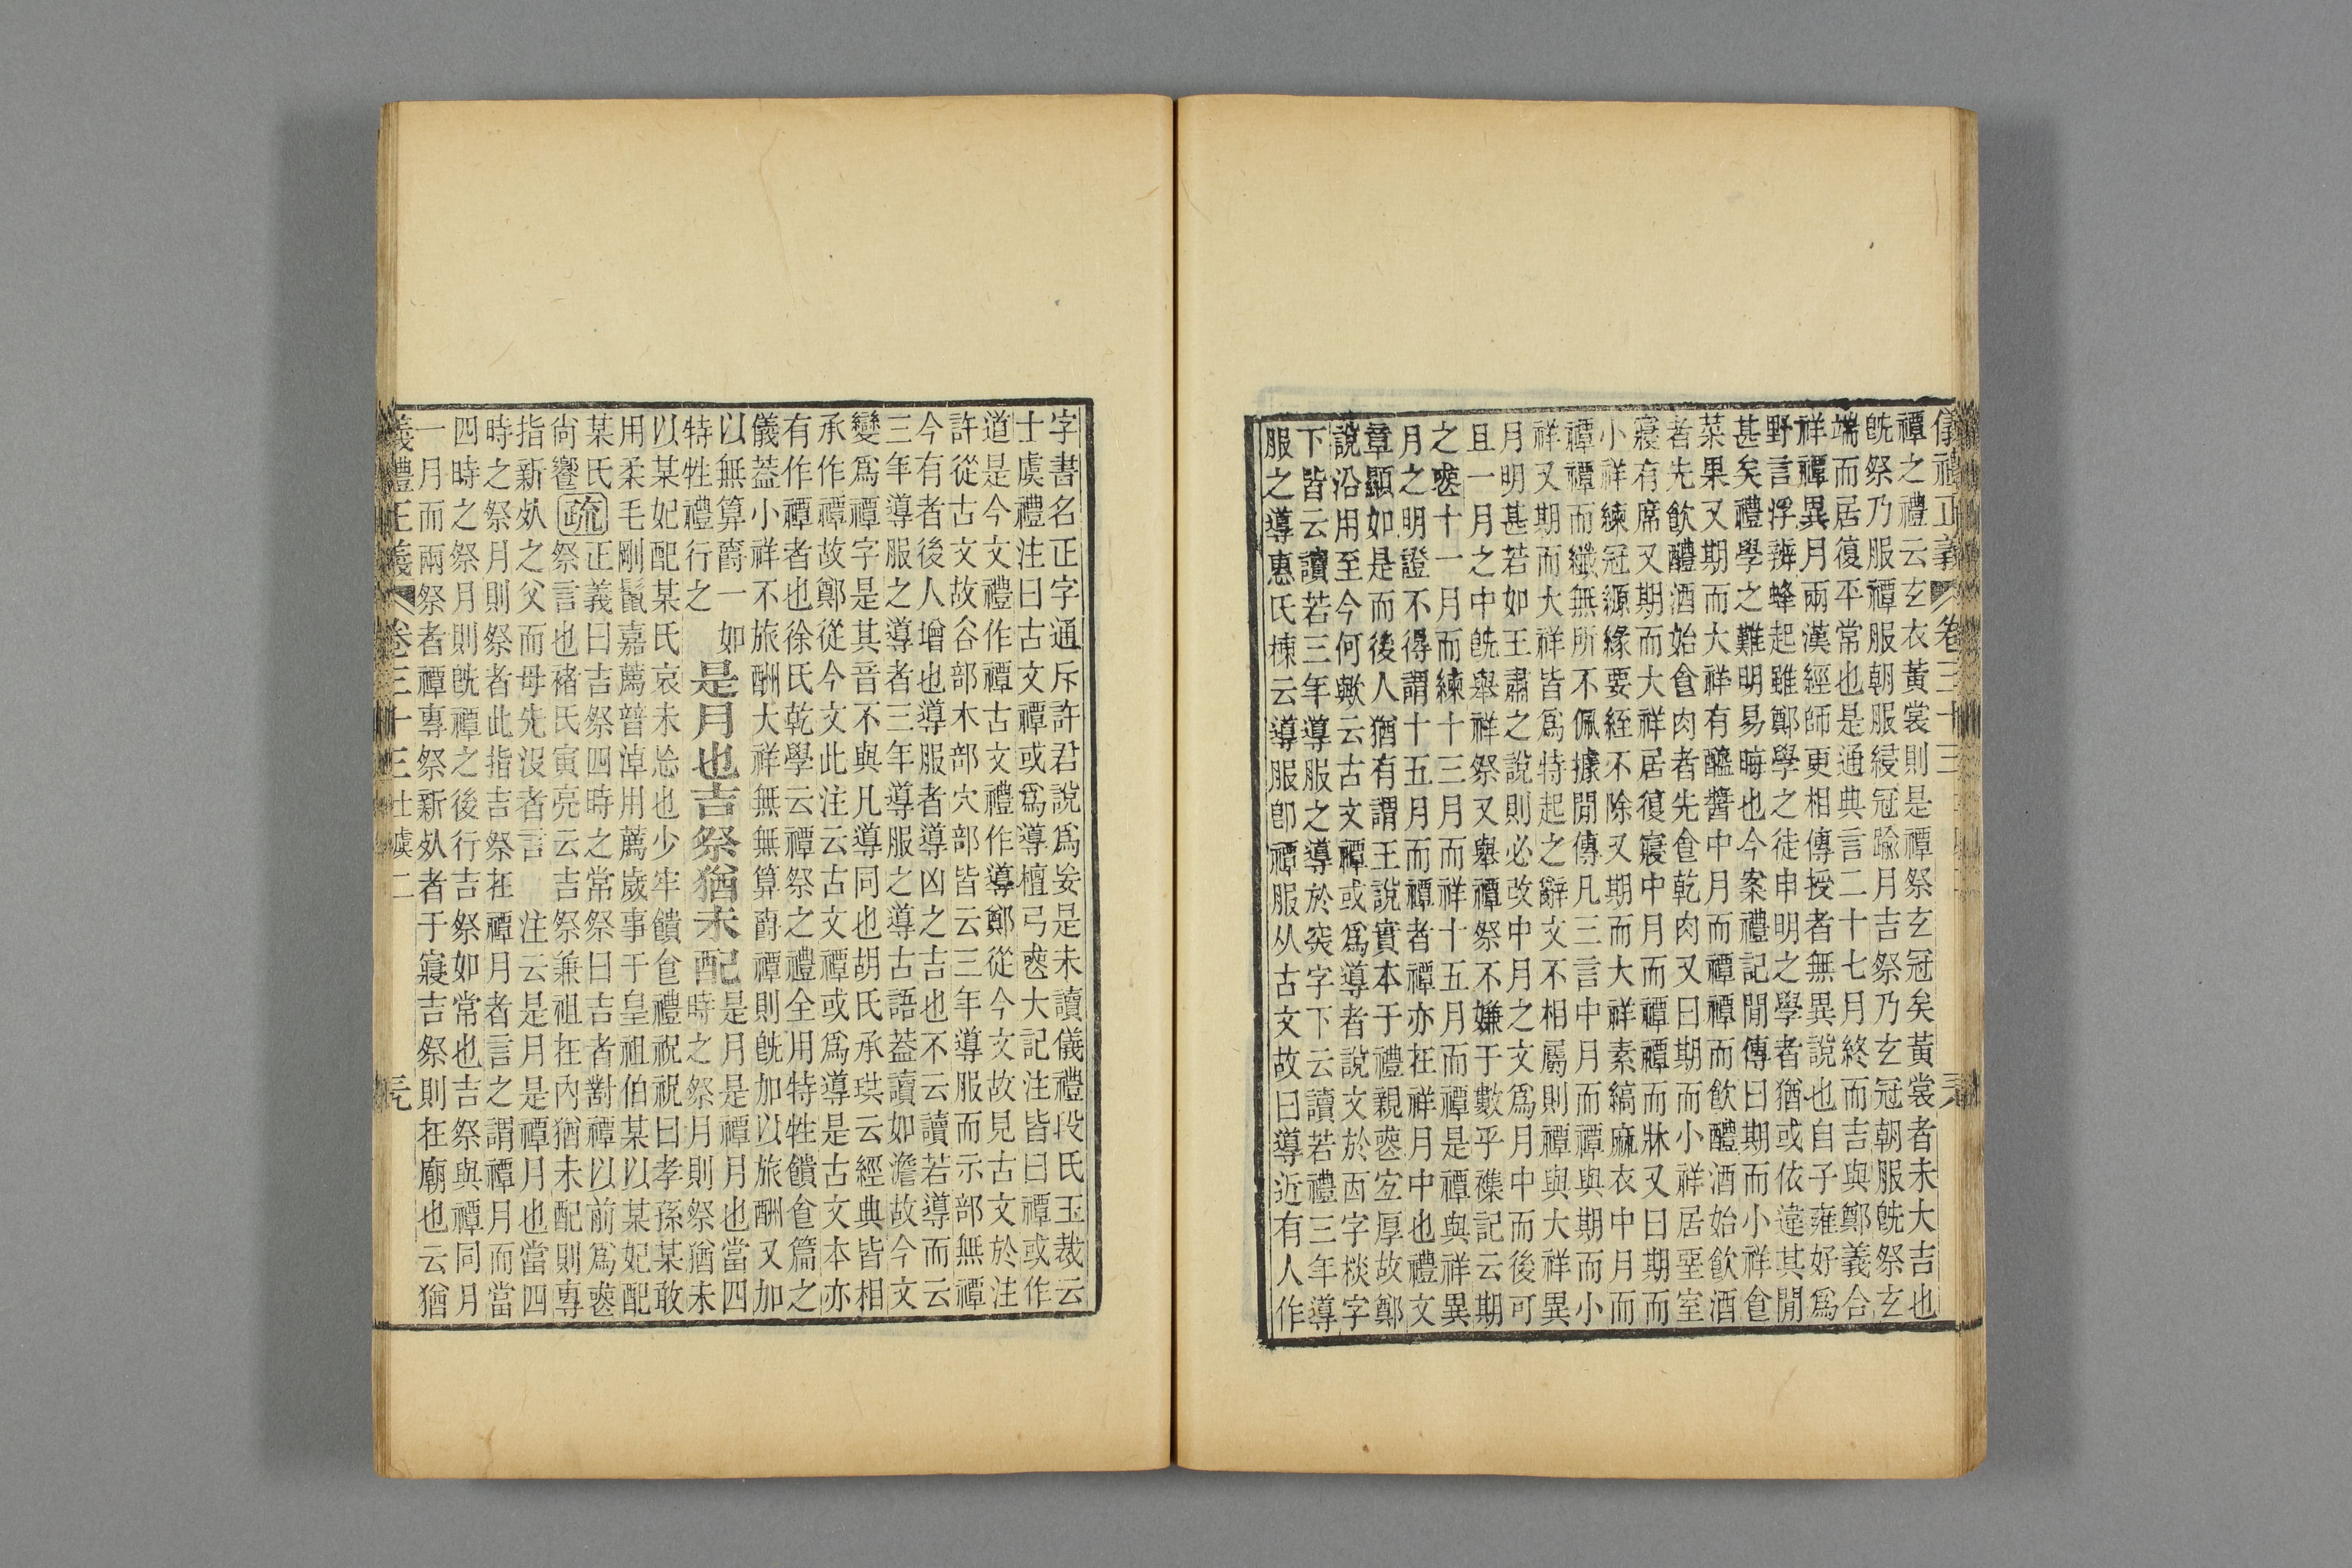 儀禮正義 卷三十三
禫之禮云玄衣黃裳則是禫祭玄冠矣黃裳者未大吉也
旣祭乃服禫服朝服綅冠踰月吉祭乃玄冠朝服旣祭玄
端而居復平常也是通典言二十七月終而吉與鄭義合
祥禫異月兩漢經師更相傳授者無異說也自子雍好爲
野言浮辨蜂起雖鄭學之徒申明之學者猶或依違其閒
甚矣禮學之難明易晦也今案禮記閒傳曰期而小祥食
菜果又期而大祥有醯醬中月而禫禫而飮醴酒始飮酒
者先飮醴酒始食肉者先食乾肉又曰期而小祥居堊室
寢有席又期而大祥居復寢中月而禫禫而牀又曰期而
小祥練冠縓緣要絰不除又期而大祥素縞麻衣中月而
禫禫而纖無所不佩據閒傳凡三言中月而禫與期而小
祥又期而大祥皆爲特起之辭文不相屬則禫與大祥異
月明甚若如王肅之說則必改中月之文爲月中而後可
且一月之中旣舉祥祭又舉禫祭不嫌于數乎襍記云期
之喪十一月而練十三月而祥十五月而禫是禫與祥異
月之明證不得謂十五月而禫者禫亦在祥月中也禮文
章顯如是而後人猶有謂王說實本于禮親喪宐厚故鄭
說沿用至今何歟云古文禫或爲導者說文於㐁字棪字
下皆云讀若三年導服之導於突字下云讀若禮三年導
服之導惠氏棟云導服卽禫服从古文故曰導近有人作
字書名正字通斥許君說爲妄是未讀儀禮段氏玉裁云
士虞禮注曰古文禫或爲導檀弓喪大記注皆曰禫或作
道是今文禮作禫古文禮作導鄭從今文故見古文於注
許從古文故谷部木部穴部皆云三年導服而示部無禫
今有者後人增也導服者導凶之吉也不云讀若導而云
三年導服之導者三年導服之導古語蓋讀如澹故今文
變爲禫字是其音不與凡導同也胡氏承珙云經典皆相
承作禫故鄭從今文此注云古文禫或爲導是古文本亦
有作禫者也徐氏乾學云禫祭之禮全用特牲饋食篇之
儀蓋小祥不旅酬大祥無無算爵禫則旣加以旅酬又加
以無算爵一如
特牲禮行之
是月也吉祭猶未配
是月是禫月也當四
時之祭月則祭猶未
以某妃配某氏哀未忘也少牢饋食禮祝祝曰孝孫某敢
用柔毛剛鬣嘉薦普淖用薦歲事于皇祖伯某以某妃配
某氏尙饗
疏
正義曰吉祭四時之常祭曰吉者對禫以前爲喪
祭言也褚氏寅亮云吉祭兼祖在內猶未配則專
指新死之父而母先沒者言 注云是月是禫月也當四
時之祭月則祭者此指吉祭在禫月者言之謂禫月而當
四時之祭月則旣禫之後行吉祭如常也吉祭與禫同月
一月而兩祭者禫專祭新死者于寢吉祭則在廟也云猶
義禮正義 卷三十三 士虞二